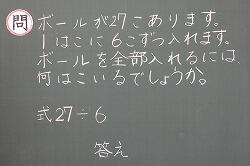 問 ボールが27こあります。
1はこに6こずつ入れます。
ボールを全部入れるには、
何はこいるでしょうか。
式27÷6
答え